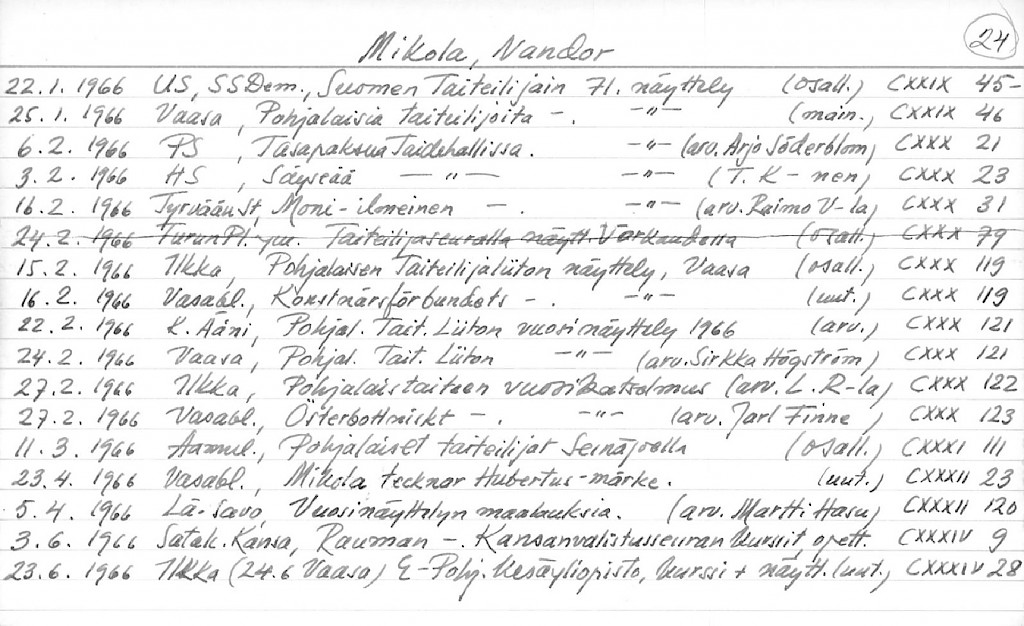 24
Mikola, Nandor
22.1. 1966 US, SSDem., Suomen Taiteilijain 71. näyttely (osall.) CXXIX 45-
25.1. 1966 Vaasa, Pohjalaisia taiteilijoita -. -"- (main.) CXXIX 46
6.2. 1966 PS, Tasapaksua Taidehallissa. -"- (arv. Arjo Söderblom) CXXX 21
3.2. 1966 HS, Säyseää -"- -"- (T. K-nen) CXXX 23
16.2. 1966 Tyrvään St, Moni-ilmeinen -. -"- (arv. Raimo V-la) CXXX 31
24.2. 1966 Turun Pl. ym. Taiteilijaseuralla näytt. Varkaudessa (osall.) CXXX 79
15.2. 1966 Ilkka, Pohjalaisen Taiteilijaliiton näyttely, Vaasa (osall.) CXXX 119
16.2. 1966 Vasabl., Konstnärsförbundets -. -"- (uut.) CXXX 119
22.2. 1966 K. Ääni, Pohjal. Tait. Liiton vuosinäyttely 1966 (arv.) CXXX 121
24.2. 1966 Vaasa, Pohjal. Tait. Liiton -"- (arv. Sirkka Högström) CXXX 121
27.2. 1966 Ilkka, Pohjalaistaiteen vuosikatselmus (arv. L. R-la) CXXX 122
27.2. 1966 Vasabl., Österbottniskt -. -"- (arv. Jarl Finne) CXXX 123
11.3. 1966 Aamul., Pohjalaiset taiteilijat Seinäjoella (osall.) CXXXI 111
23.4. 1966 Vasabl., Mikola tecknar Hubertus-märke. (uut.) CXXXII 23
5.4. 1966 Lä-Savo, Vuosinäyttelyn maalauksia. (arv. Martti Hasu) CXXXII 120
3.6. 1966 Satak. Kansa, Rauman -. Kansanvalistusseuran kurssit, opett. CXXXIV 9
23.6. 1966 Ilkka (24.6 Vaasa) E-Pohj. Kesäyliopisto, kurssi + näytt. (uut.) CXXXIV 28